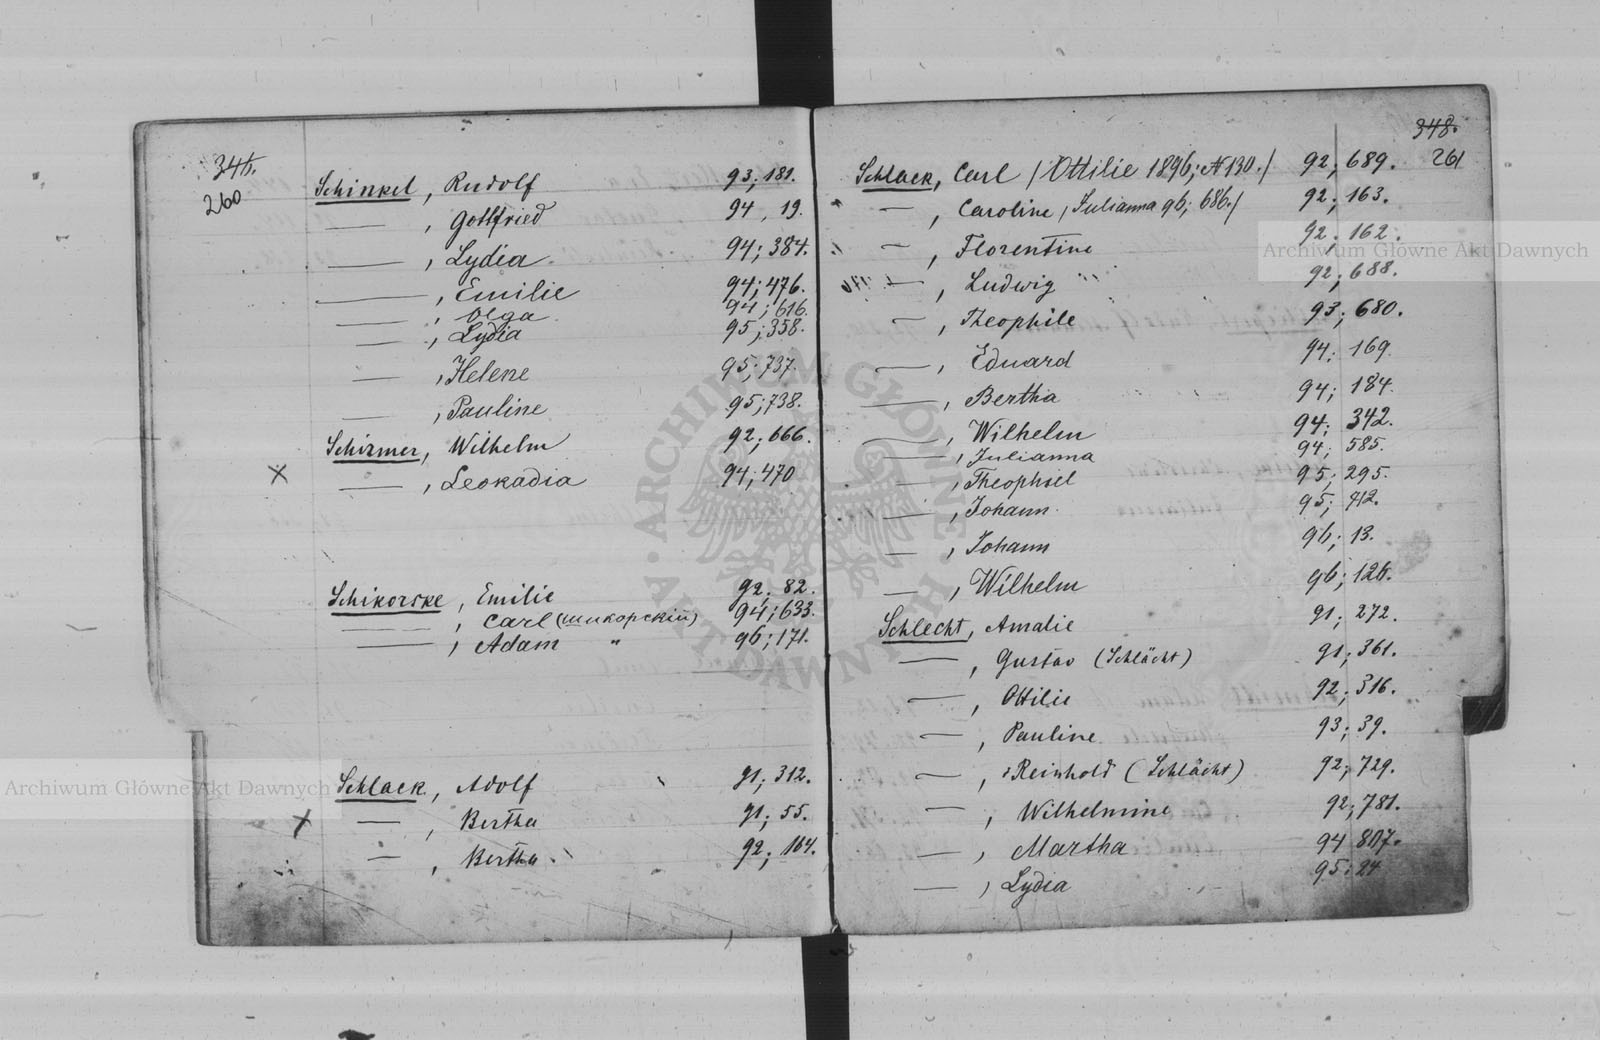 260
Schinkel, Rudolf 93; 181.
—, Gottfried 94, 19.
—, Lydia 94; 384.
—, Emilie 94; 476.
—, Olga 94; 616.
—, Lydia 95; 358.
—, Helene 95; 737.
—, Pauline 95; 738.
Schirmer, Wilhelm 92; 666.
× —, Leokadia 94; 470
Schikorske, Emilie 92; 82.
—, Carl (Шикорскій) 94; 633.
—, Adam " 96; 171.
Schlack, Adolf 91; 312.
× —, Bertha 91; 55.
—, Bertha 92; 164.
348.
261
Schlack, Carl /Ottilie 1896; N 130./ 92; 689.
—, Caroline /Julianna 96; 686./ 92; 163.
—, Florentine 92; 162.
—, Ludwig 92; 688.
—, Theophile 93; 680.
—, Eduard 94; 169.
—, Bertha 94; 184.
—, Wilhelm 94; 342.
—, Julianna 94; 585.
—, Theophiel 95; 295.
—, Johann 95; 412.
—, Johann 96; 13.
—, Wilhelm 96; 126.
Schlecht, Amalie 91; 272.
—, Gustav (Schlächt) 91; 361.
—, Ottilie 92; 316.
—, Pauline 93; 39.
—, Reinhold (Schlächt) 92; 729.
—, Wilhelmine 92; 781.
—, Martha 94 807.
—, Lydia 95; 24
Archiwum Główne Akt Dawnych
Archiwum Główne Akt Dawnych
ARCHIWUM GŁÓWNE AKT DAWNYCH